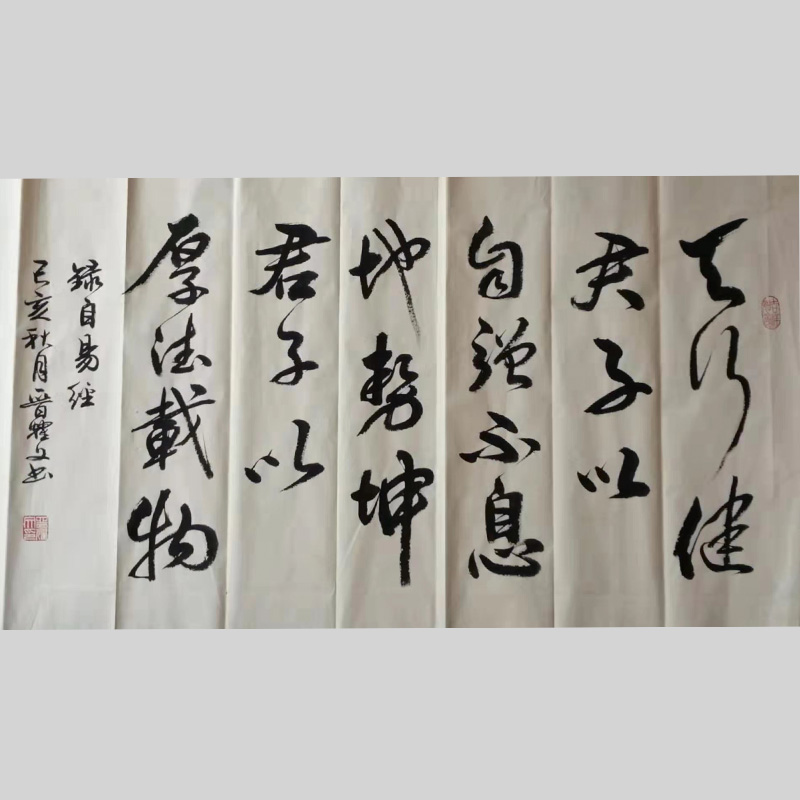 天行健
君子以
自强不息
地势坤
君子以
厚德載物
録自易經
己亥秋月晋楚文书